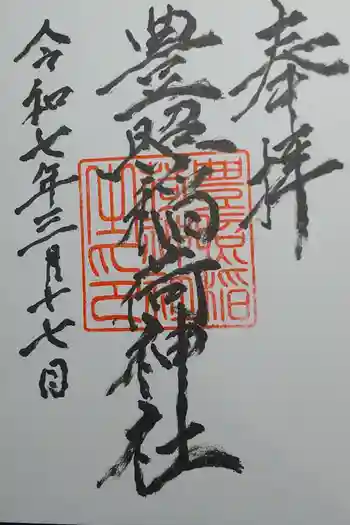 奉拝
豊照稲荷神社
令和七年三月十七日